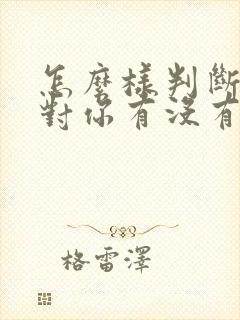 怎麼樣判斷
對你有沒有
格雷澤